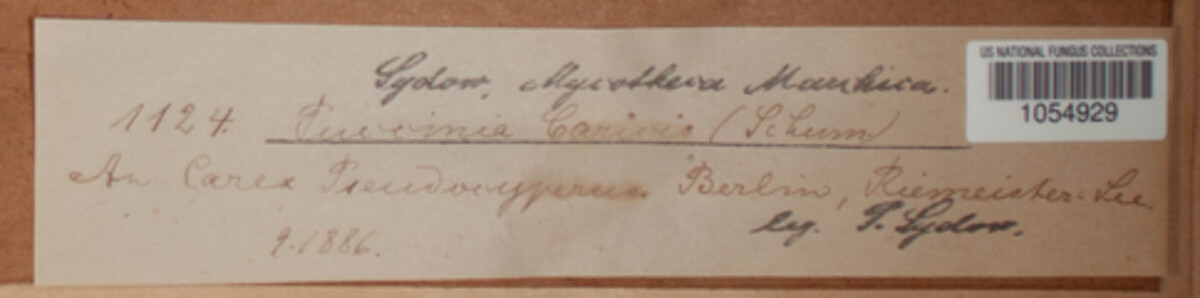 Sydow, Mycotheca Marchica.
US NATIONAL FUNGUS COLLECTIONS
1054929
1124. Puccinia Caricis (Schum)
An Carex Pseudocyperus. Berlin, Riemeister-See
9.1886.
leg. P. Sydow.